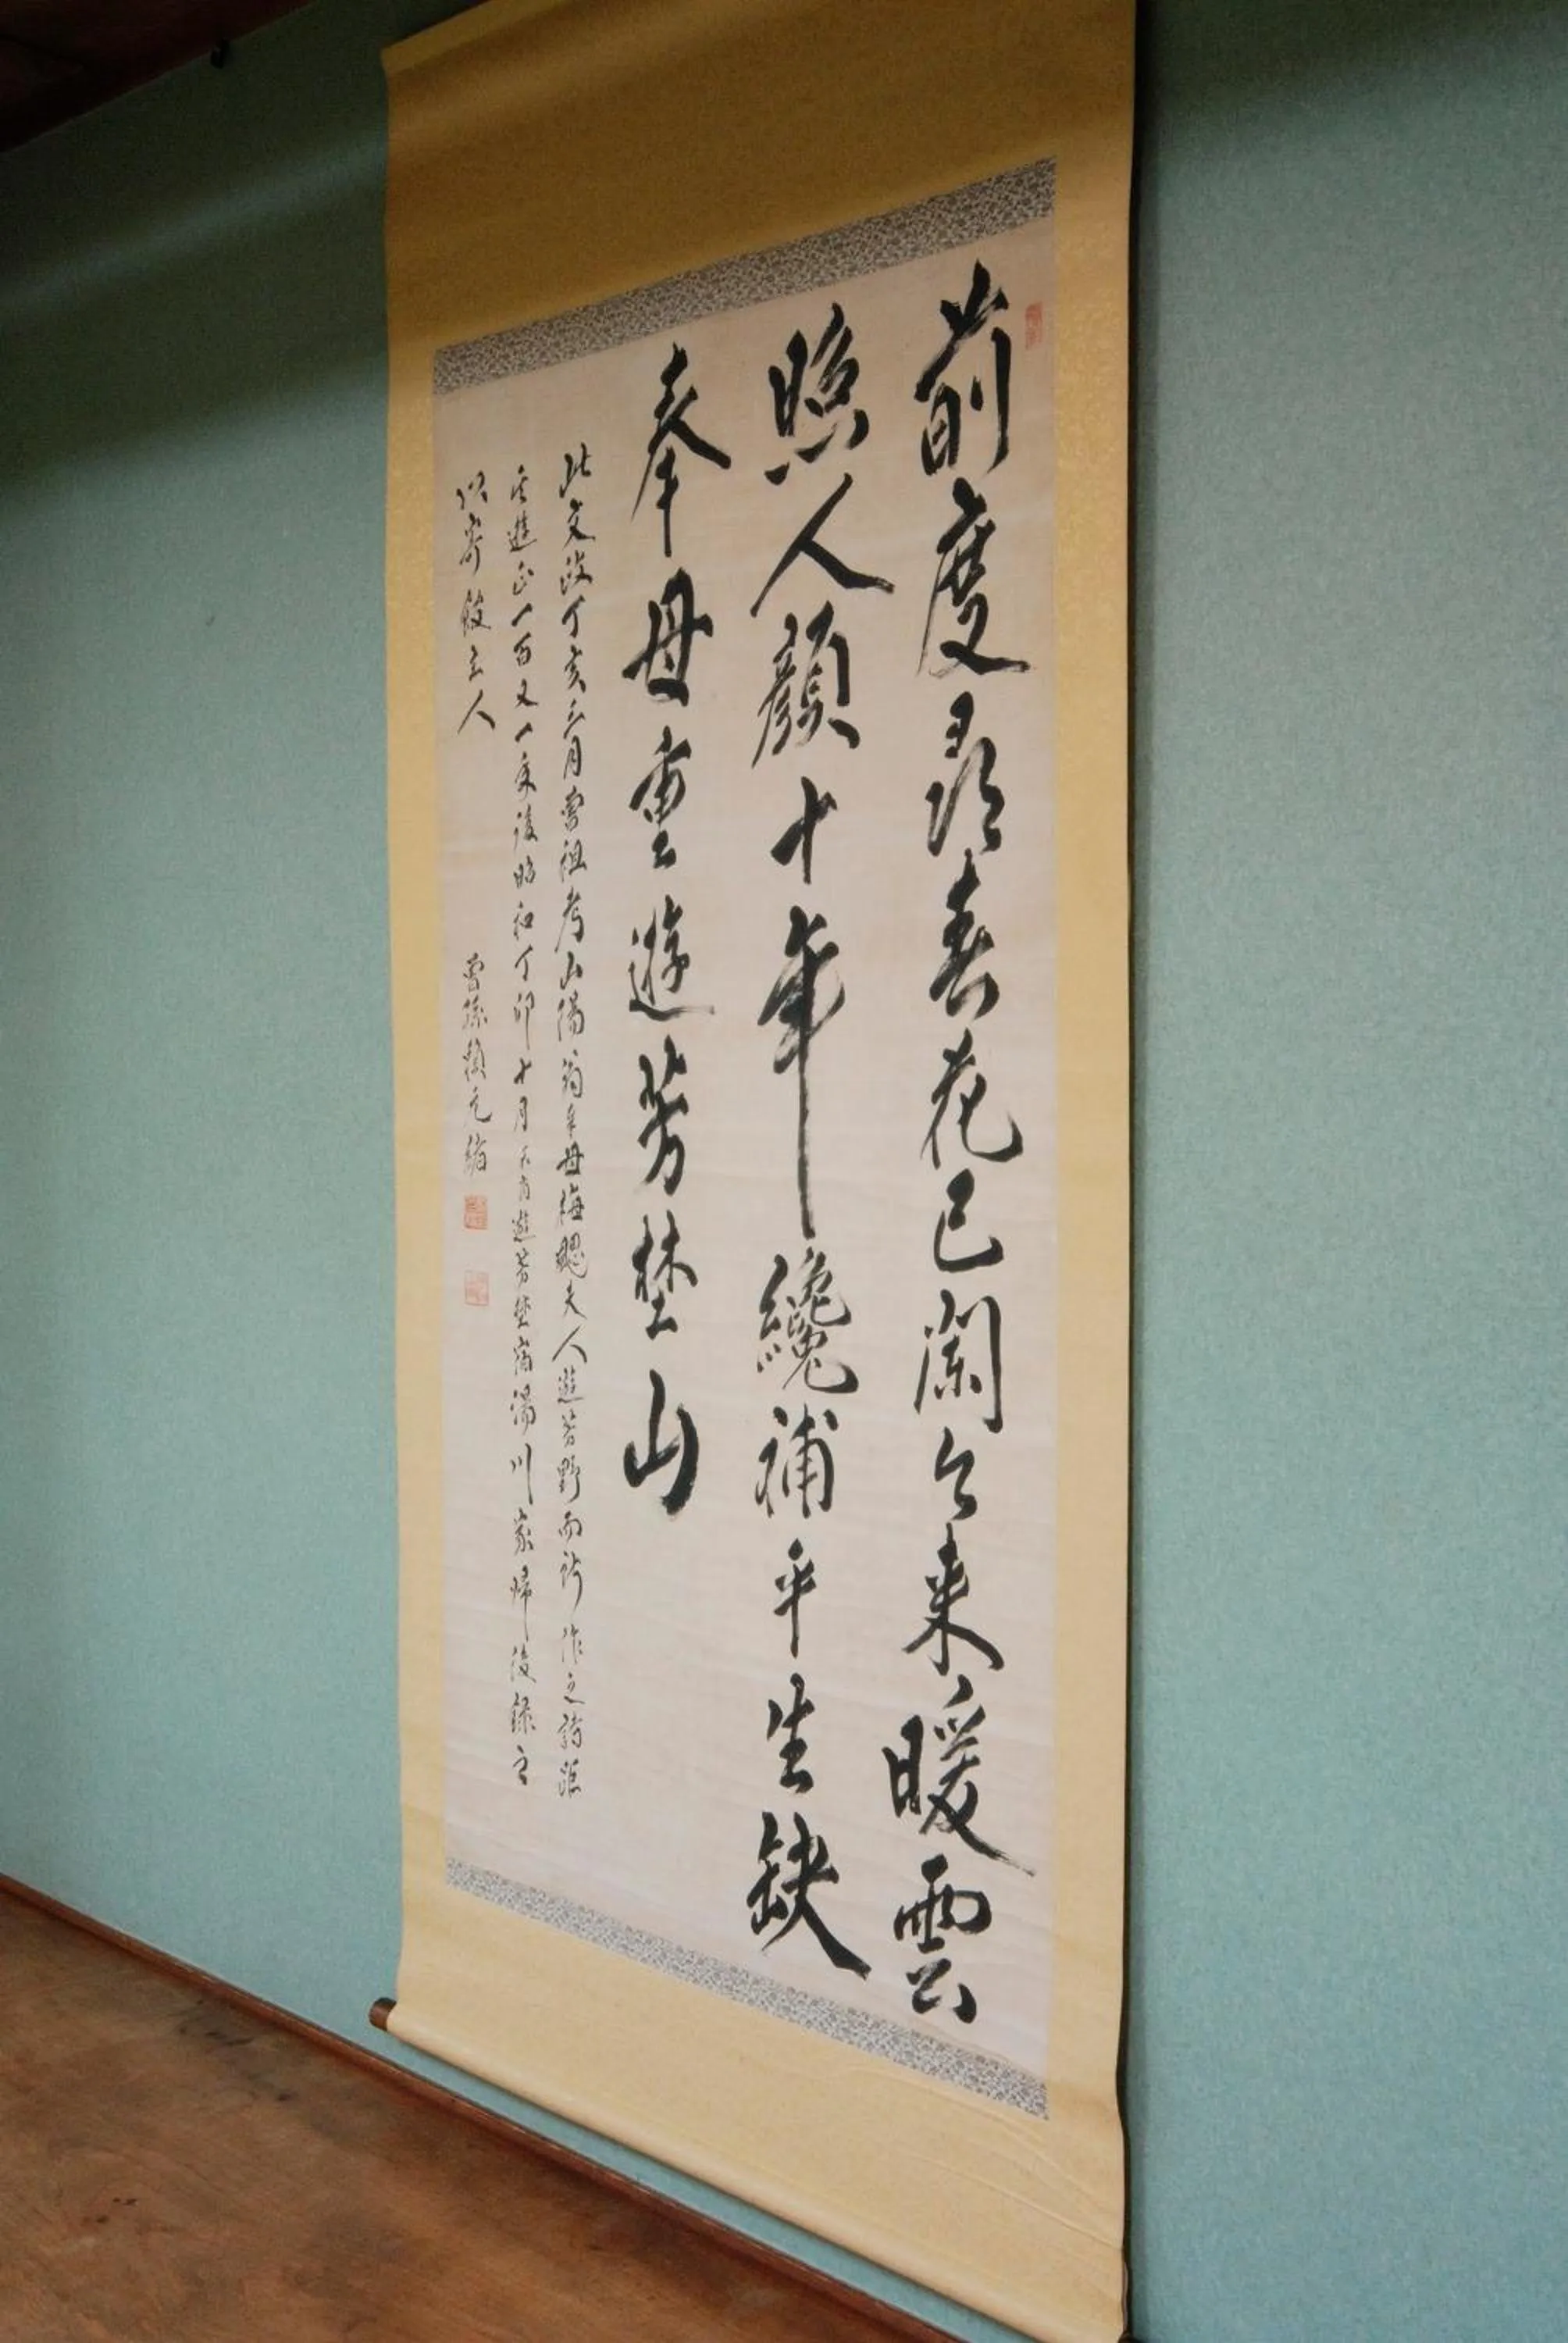 前度尋春花已闌今来暖雲
照人顔十年纔補平生缺
奉母重遊芳埜山
此文政丁亥三月曽祖考山陽翁奉母梅颸夫人遊芳野而所作之詩距
其遊正一百又一年後昭和丁卯十月下旬遊芳埜宿湯川家帰後録之
以寄館主人
曽孫頼元緒